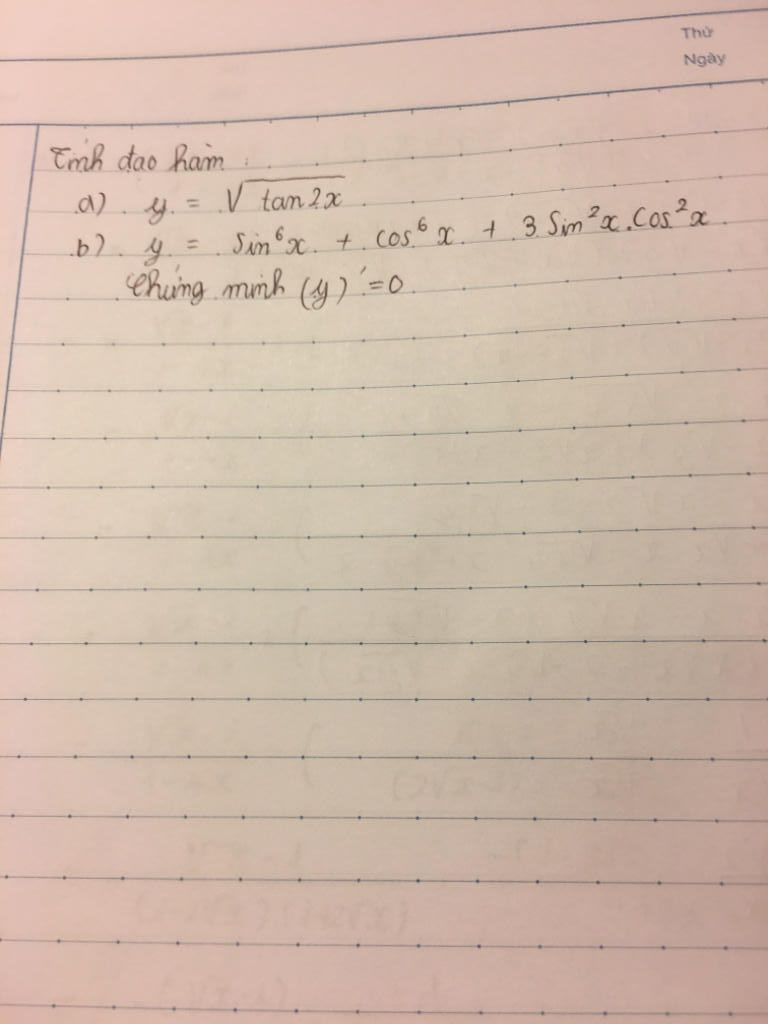 Thứ
Ngày
Tính đạo hàm :
a) y = √tan2x
b) y = Sin⁶x + cos⁶x + 3 Sin²x.Cos²x
Chứng minh (y)' = 0